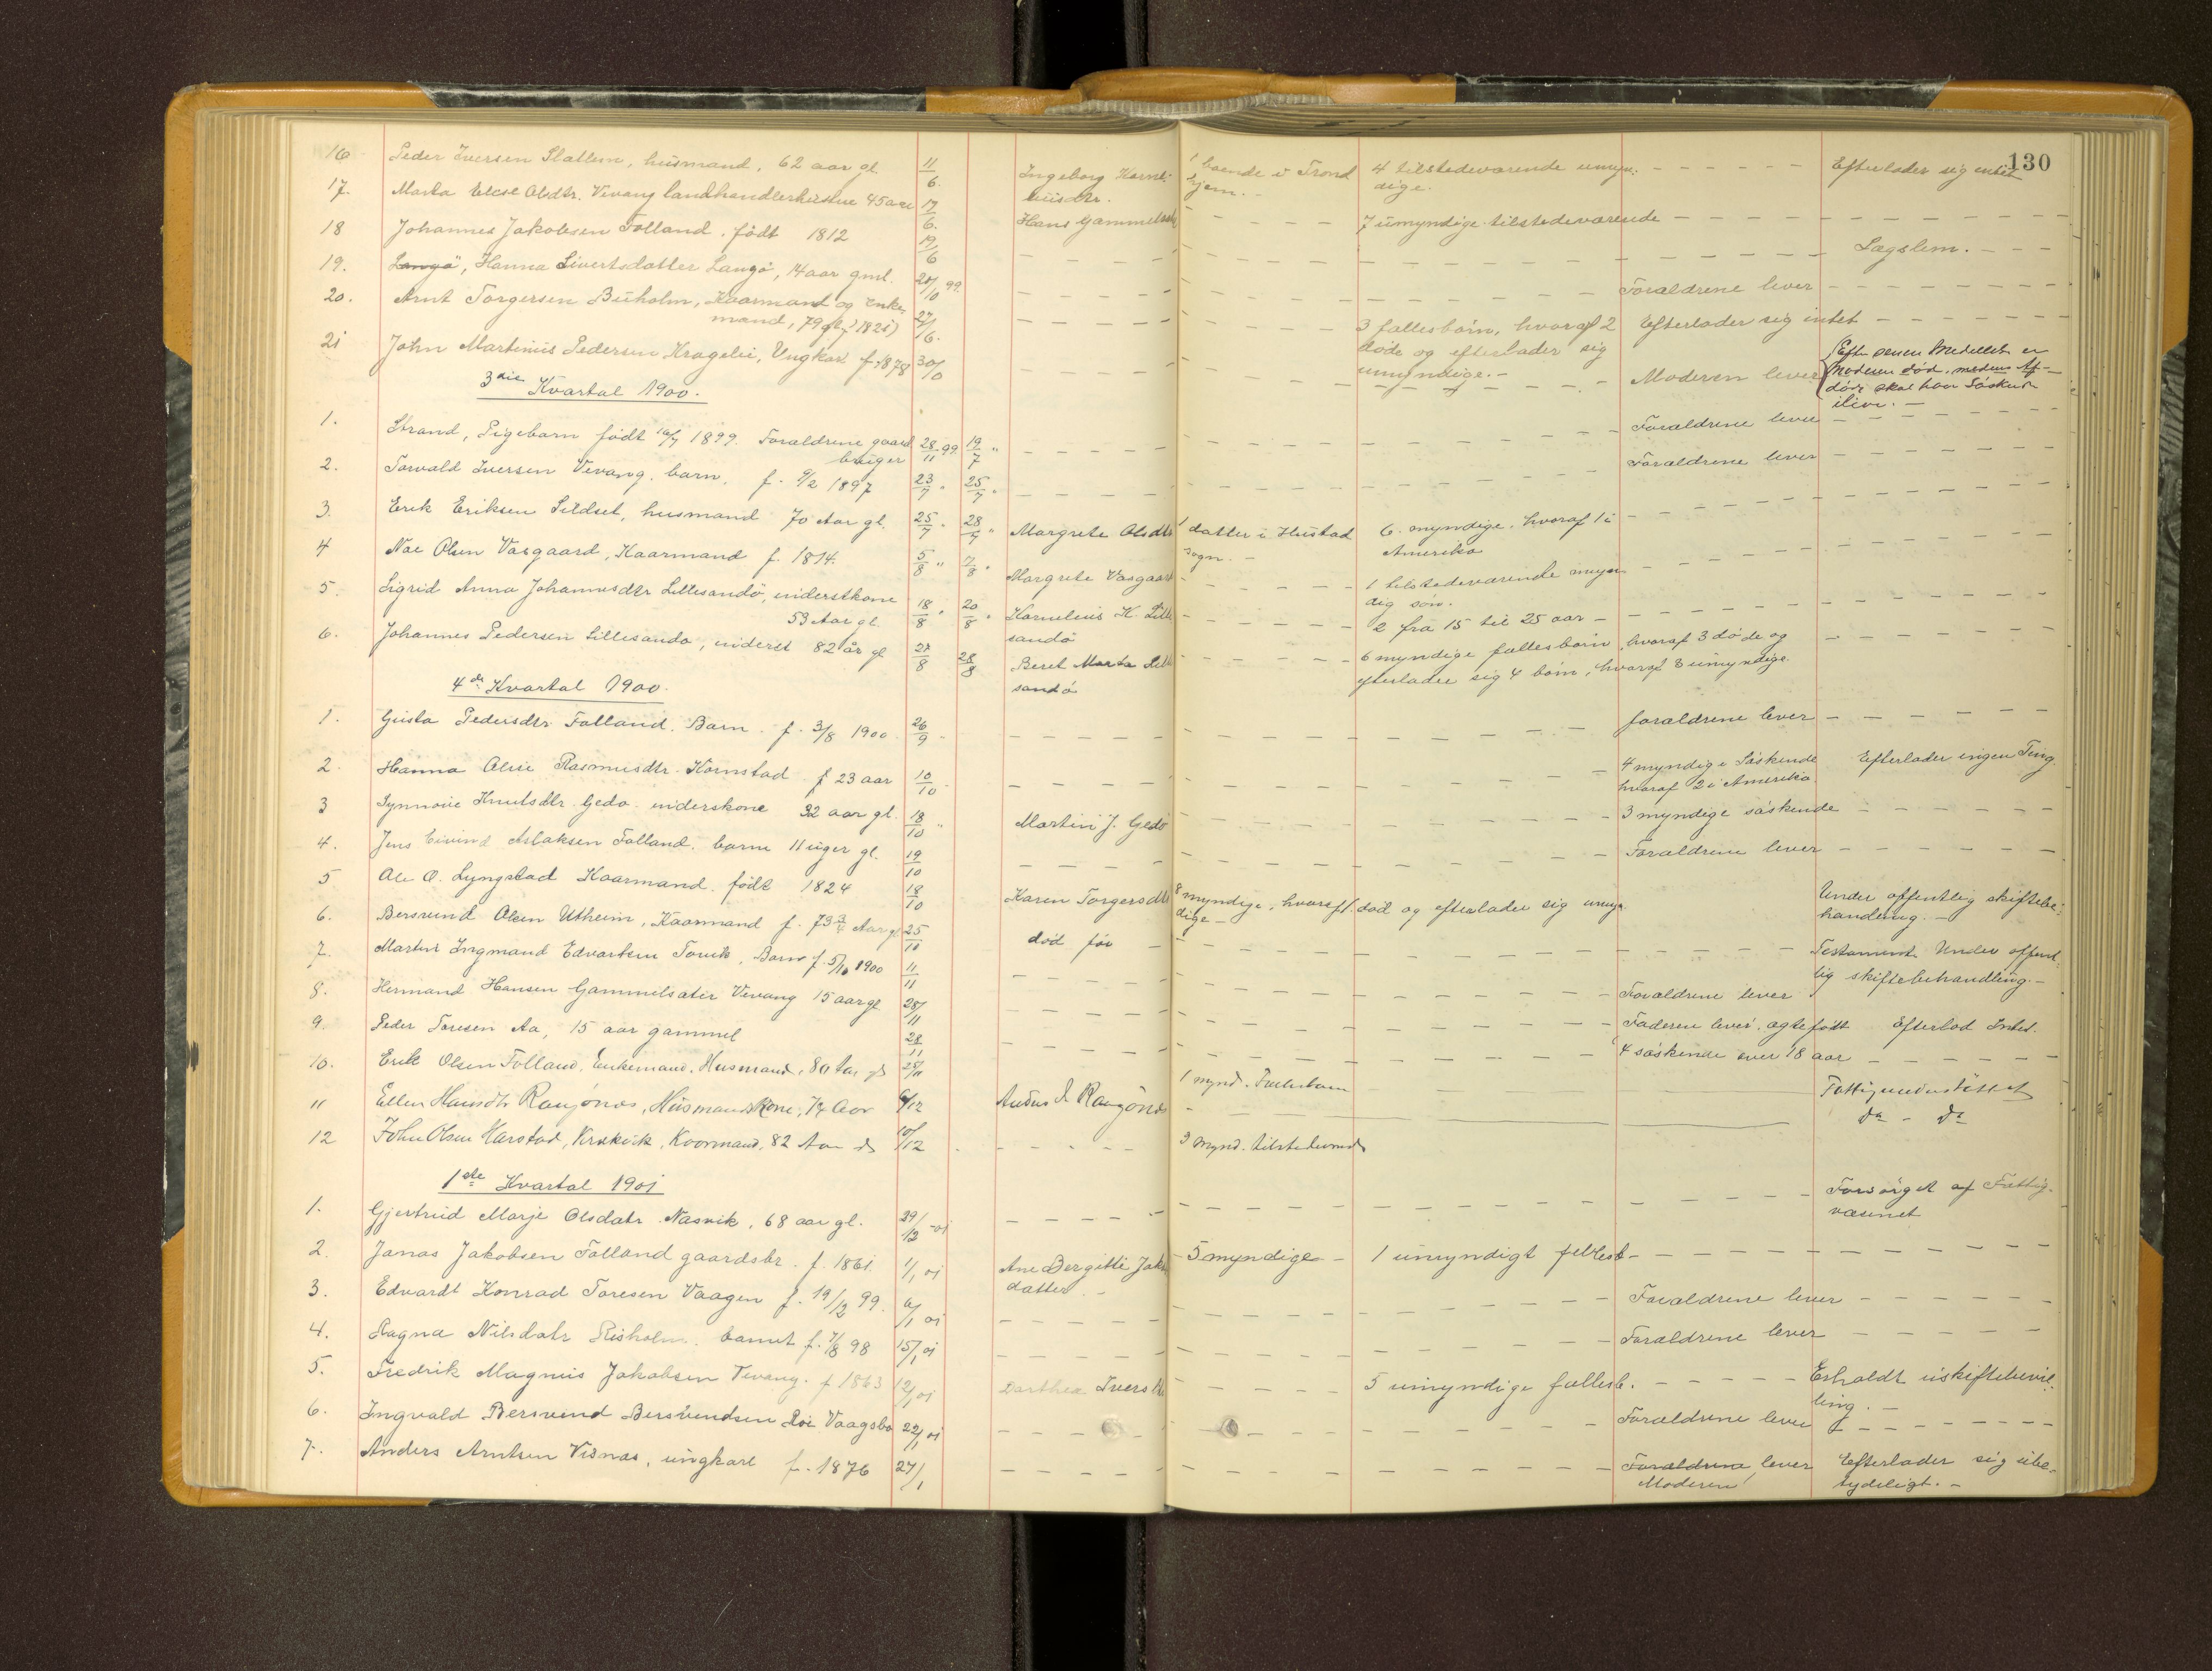 130
16 Peder Iversen Slatlem, husmand, 62 aar gl. 11/6. Ingeborg Korne- 1 boende i Trond 4 tilstedeværende umyn- Efterlader sig intet
liusdtr. hjem. dige.
17. Marta Olsdtr. Vevang landhandlerhustru 45 aar 17/6. Hans Gammelsæter 7 umyndige tilstedeværende
18 Johannes Jakobsen Folland. født 1812 19/6 Lægslem.
19. Langö, Hanna Sivertsdatter Langö, 14 aar gml. 20/10 99. Forældrene lever
20. Arnt Torgersen Buholm, Kaarmand og Enke- 27/6. 3 fællesbörn, hvoraf 2 Efterlader sig intet
mand, 79 gl. (1821) döde og efterlader sig
umyndige.
21 John Martinus Pedersen Kragelii, Ungkar f. 1878 30/0 Moderen lever
Efter senen Meddelelse er
Moderen död, medens Af-
döde skal have Söskende
ilive.
3die Kvartal 1900.
1. Strand, Pigebarn født 16/7 1899. Forældrene gaard 28/11 99 19/7 " Forældrene lever
bruger
2. Torvald Iversen Vevang. barn. f. 9/2 1897 23/7 " 25/7 " Forældrene lever
3. Erik Eriksen Sildset, husmand 70 Aar gl. 25/7 28/7 " Margrete Olsdtr 1 datter i Hustad 6. myndige. hvoraf 1 i
sogn. Amerika
4 Noe Olsen Vasgaard, Kaarmand f. 1814. 5/8 " 7/8 " Margrete Vasgaard 1 tilstedeværende myn
dig søn.
5. Sigrid Anna Johannesdtr Lillesandö, inderstkone 18/8 " 20/8 " Kornelius K Lille 2 fra 15 til 25 aar
53 Aar gl. sandö
6. Johannes Pedersen Lillesandö, inderst 82 år gl 27/8 28/8 Beret Marta Lille 6 myndige fællesbörn, hvoraf 3 döde og
sandö efterlader sig 4 börn, hvoraf 3 umyndige.
4de Kvartal 1900.
1. Gusta Pedersdtr Folland. Barn. f. 3/8 1900 26/9 forældrene lever
2. Hanna Olise Rasmusdtr. Kornstad f 23 aar 10/10 4 myndige Söskende Efterlader ingen Ting.
hvoraf 2 i Amerika
3 Synnöve Knutsdtr. Gedö inderskone 32 aar gl. 18/10 " Martin J. Gedö 3 myndige söskende
4. Jens Eivind Aslaksen Folland. barn 11 uger gl. 19/10 Forældrene lever
5 Ole O. Lyngstad Kaarmand. født 1824 18/10 Karen Torgersdtr 8 myndige, hvoraf 1. död og efterlader sig umyn Under offentlig skiftebe-
dige handling.
6. Bersvend Olsen Utheim, Kaarmand f. 73 3/4 Aar gl 25/10 död för Testament. Under offent-
lig skiftebehandling.
7. Martin Ingmand Edvartsen Torvik, Barn f. 5/10 1900 11/11 Forældrene lever
8. Hermand Hansen Gammelsæter Vevang 15 aar gl 28/11 Faderen lever. ægtefödt Efterlod Intet.
9. Peder Toresen Aa, 15 aar gammel 28/11 4 söskende over 18 aar
10. Erik Olsen Folland, Enkemand, Husmand, 80 Aar gl 25/11 1 mynd. Fællesbarn Fattigunderstöttet
11 Ellen Hansdtr Rangönes, Husmandskone, 74 Aar 6/12 Anders I. Rangönes do - do
12 John Olsen Harstad, Kirkvik, Kaarmand, 82 Aar gl 10/12 3 mynd. tilstedeværende
1ste Kvartal 1901
1. Gjertrud Marje Olsdatr. Nasvik, 68 aar gl. 29/12 -01 Forsörget af Fattig-
væsenet
2. Janas Jakobsen Folland gaardsbr. f. 1861. 1/1 01 Ane Bergitte Jakobs 5 myndige 1 umyndigt fellesb
datter
3. Edvardt Konrad Toresen Vaagen f. 19/12 99. 6/1 01 Forældrene lever
4. Ragna Nilsdatr Risholm. barnet f. 7/8 98 15/1 01 Forældrene lever
5. Fredrik Magnus Jakobsen Vevang. f 1863 12/1 01 Dorthea Iversdtr 5 umyndige fællesb. Erholdt uskiftebevil-
ling.
6. Ingvald Bersvend Bersvendsen Vaagsbö 22/1 01 Forældrene lever
7. Anders Arntsen Visnæs, ungkarl f. 1876 27/1 Forældrene lever Efterlader sig ube-
Moderen tydeligt.